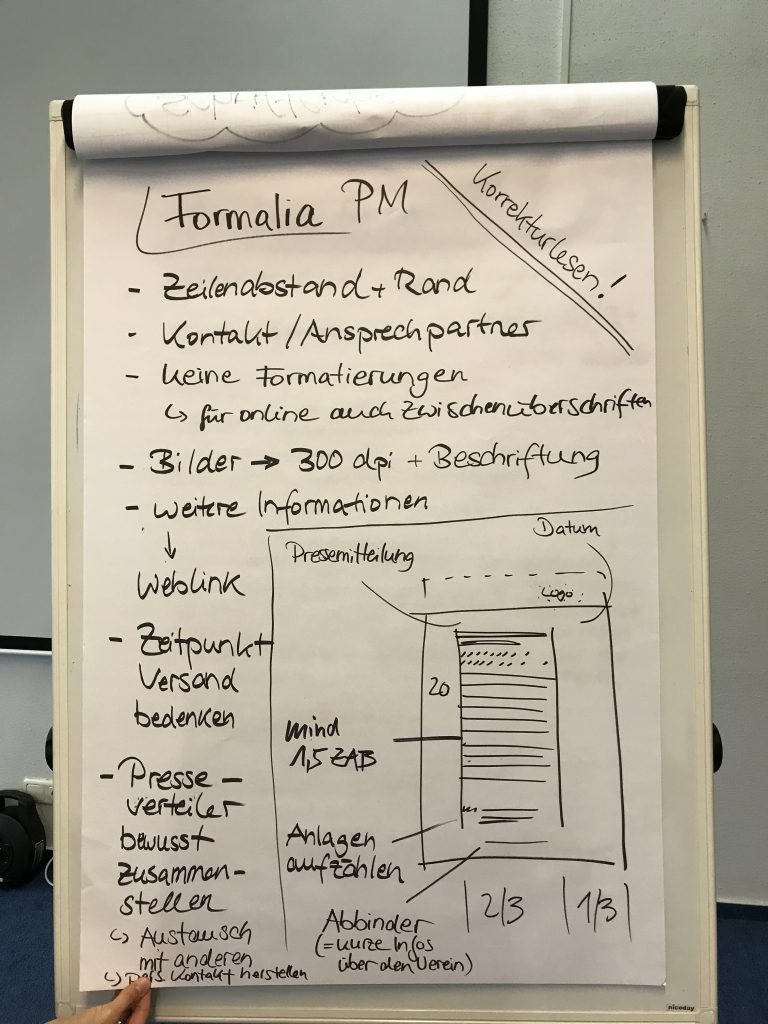 Formalia PM
Korrekturlesen!
- Zeilenabstand + Rand
- Kontakt / Ansprechpartner
- keine Formatierungen
↳ für online auch Zwischenüberschriften
- Bilder → 300 dpi + Beschriftung
- weitere Informationen
↓
Weblink
- Zeitpunkt
Versand
bedenken
- Presse-
verteiler
bewusst
zusammen-
stellen
↳ Austausch
mit anderen
↳ Pers. Kontakt herstellen
Datum
Pressemitteilung
Logo
20
mind
1,5 ZAB
Anlagen
aufzählen
Abbinder
(= kurze Infos
über den Verein)
2/3
1/3
niceday